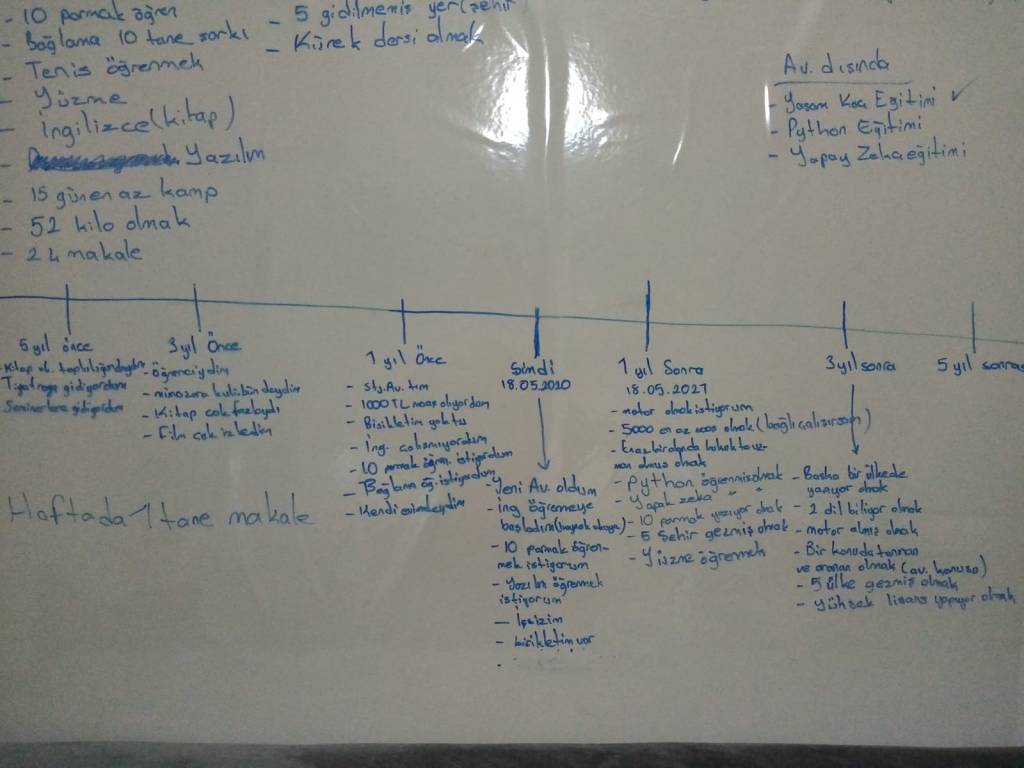 - 10 parmak öğren
- Bağlama 10 tane şarkı
- Tenis öğrenmek
- Yüzme
- İngilizce (kitap)
- Yazılım
- 15 günen az kamp
- 52 kilo olmak
- 24 makale
- 5 gidilmemiş yer (şehir
- Kürek dersi almak
Av. dışında
- Yaşam Koçu Eğitimi ✓
- Python Eğitimi
- Yapay Zeka eğitimi
5 yıl önce
Tiyatroya gidiyordum
Seminerlere gidiyordum
3 yıl Önce
- Öğrenciydim
- Kitap çok fazlaydı
- Film çok izledim
1 yıl Önce
- Stj. Av. tım
- 1000 TL maaş alıyordum
- Bisikletim yoktu
- İng. çalışmıyordum
- 10 parmak öğren. istiyordum
- Bağlama öğ. istiyordum
- Kendi evimdeydim
Şimdi
18.05.2020
- Yeni Av. oldum
- ing. öğrenmeye
başladım
- 10 parmak öğren-
mek istiyorum
- Yazılım öğrenmek
istiyorum
- İşsizim
- bisikletim var
1 yıl Sonra
18.05.2021
- motor almak istiyorum
- 5000 en az maaş almak (bağlı çalışırsam)
- En az bir alanda
man olmuş olmak
- Python öğrenmiş olmak
- Yapak zeka " "
- 10 parmak yazıyor olmak
- 5 Şehir gezmiş olmak
- Yüzme öğrenmek
3 yıl sonra
- Başka bir ülkede
yaşıyor olmak
- 2 dil biliyor olmak
- motor almış olmak
- Bir konuda tanınan
ve aranan olmak (av. konusu)
- 5 ülke gezmiş olmak
- Yüksek lisans yapıyor olmak
5 yıl sonra
Haftada 1 tane makale